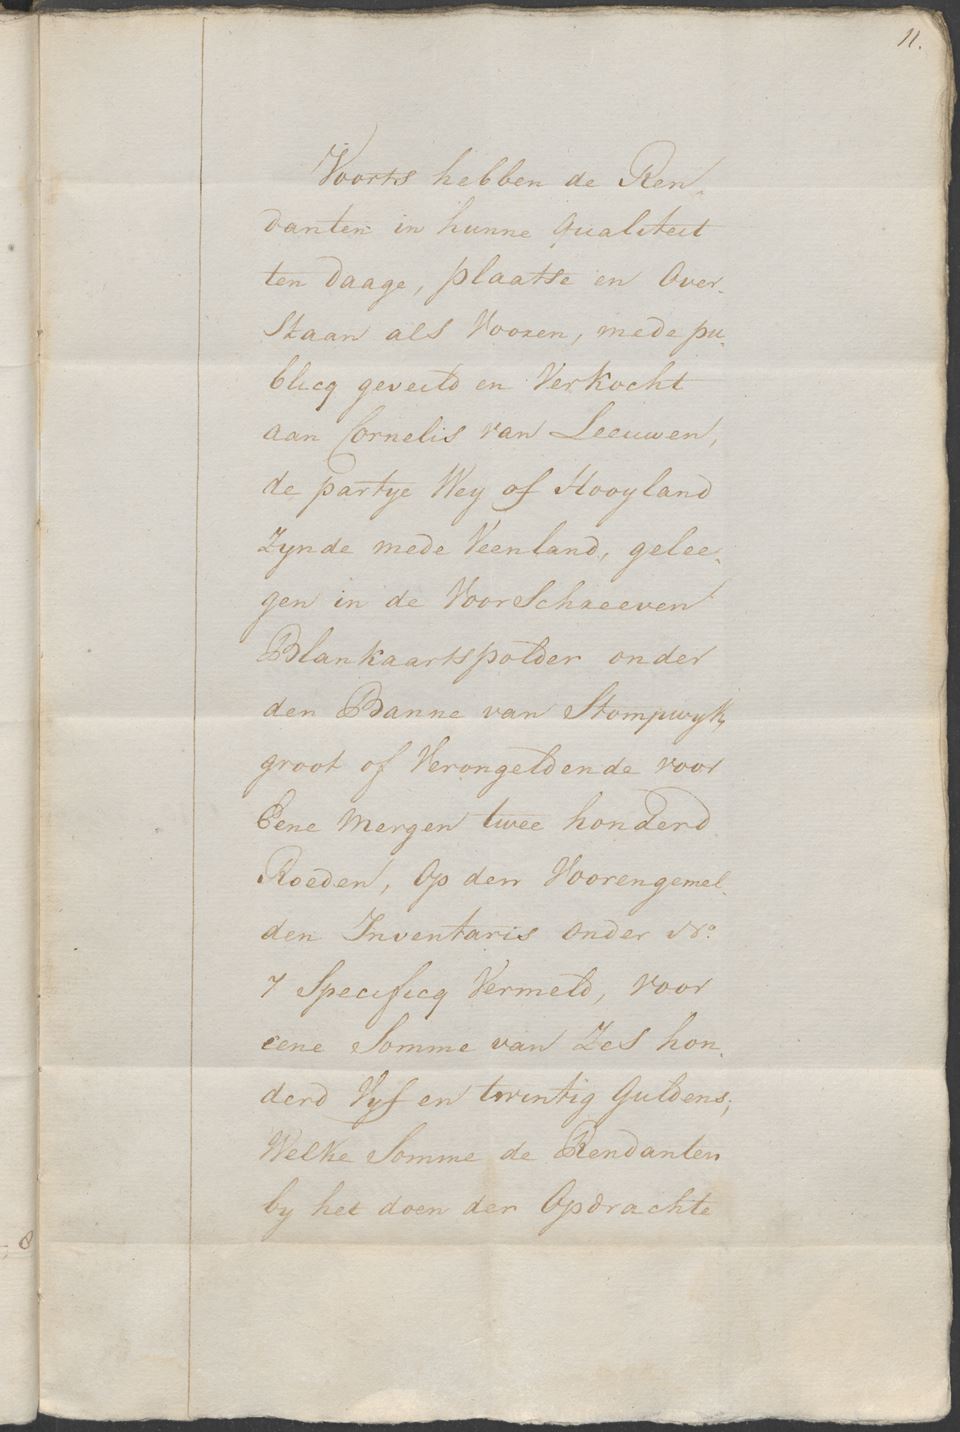 11.
Voorts hebben de Ren-
danten in hunne qualiteit
ten daage, plaatse en Over-
Staan als Vooren, mede pu-
blicq geveild en Verkocht
aan Cornelis van Leeuwen,
de partye Wey of Hooyland
Zynde mede Veenland, gelee-
gen in de VoorSchreeven
Blankaartspolder onder
den Banne van Stompwyk,
groot of Verongeldende voor
Eene Mergen twee honderd
Roeden, Op den Voorengemel-
den Inventaris onder No.
7 Specificq Vermeld, Voor
eene Somme van Zes hon-
derd Vyf en twintig Guldens;
Welke Somme de Rendanten
by het doen der Opdrachte
8